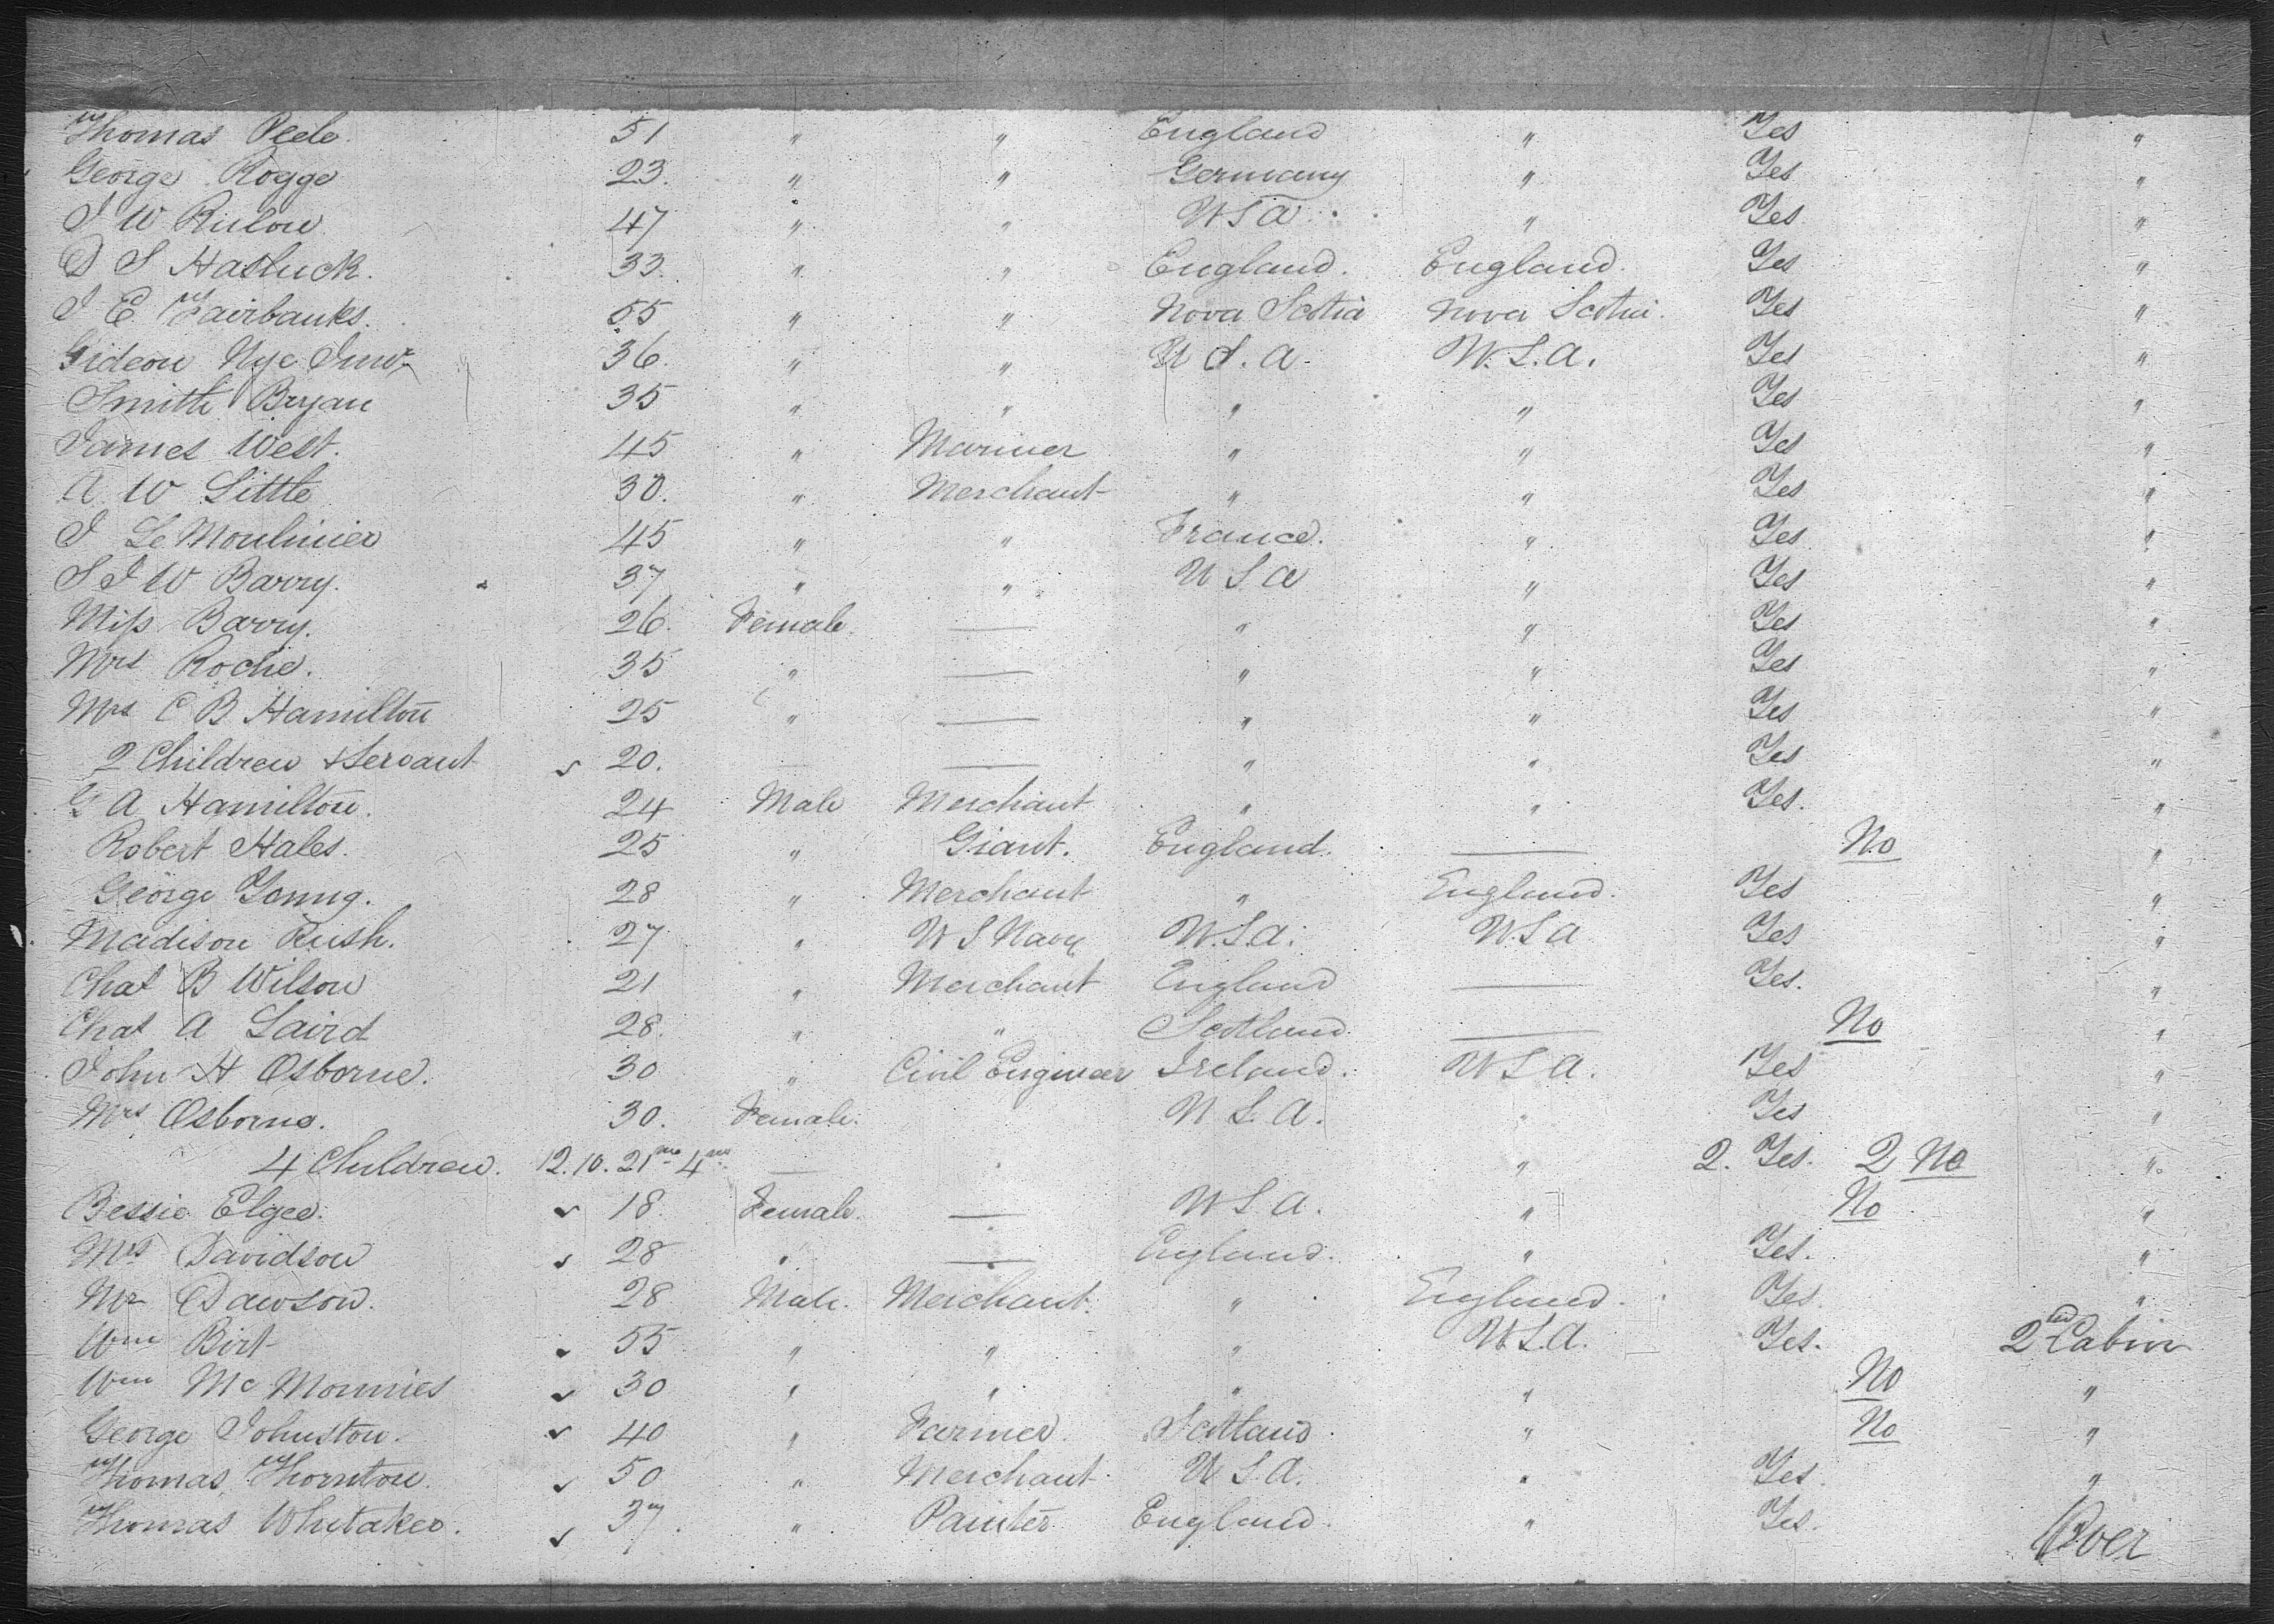 Thomas Peele. 51 " " England " Yes "
George Rogge 23. " " Germany " Yes "
J W Rulon 47 " " U S A " Yes "
D S Hasluck. 33. " " England. England. Yes "
J E Fairbanks. 55 " " Nova Scotia Nova Scotia. Yes "
Gideon Nye Junr 36. " " U S. A. U. S. A. Yes "
Smith Bryan 35 " " " " Yes "
James West. 45 " Mariner " " Yes "
A W Little 30. " Merchant " " Yes "
J Le Moulinier 45 " " France. " Yes "
S J W Barry. 37 " " U S A " Yes "
Miss Barry. 26. Female. — " " Yes "
Mrs Roche. 35 " — " " Yes "
Mrs C B Hamilton 25 " — " " Yes "
2 Children & Servant 20. — — " " Yes "
G A Hamilton. 24 Male Merchant " " Yes. "
Robert Hales. 25 " Giant. England. — No "
George Young. 28 " Merchant " England. Yes "
Madison Rush. 27 " U S Navy U.S.A. U S A Yes "
Chas B Wilson 21 " Merchant England — Yes. "
Chas A Laird 28. " " Scotland — No "
John H Osborne. 30 " Civil Engineer Ireland. U S A. Yes "
Mrs Osborne. 30. Female. U. S. A. " Yes "
4 Children. 12. 10. 21mo 4mo — " 2. Yes. 2 No "
Bessie Elgee. 18. Female. — U S A. " No "
Mrs Davidson 28 " — England. " Yes. "
Mr Dawson. 28 Male. Merchant. " England. Yes. "
Wm Birt 55 " " " U.S.A. Yes. 2nd Cabin
Wm Mc Monnies 30 " " " " No "
George Johnston. 40 " Farmer. Scotland. " No "
Thomas Thornton. 50 " Merchant U. S. A. " Yes. "
Thomas Whitaker. 37. " Painter England. " Yes.
Over